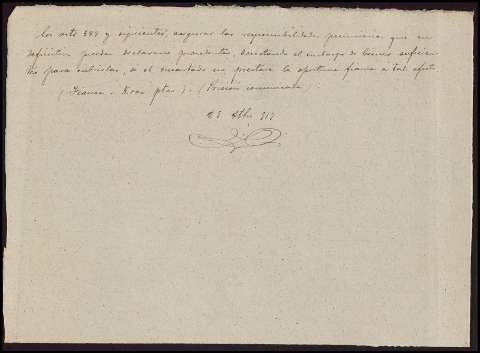 los arts 589 y siguientes, asegurar las responsabilidades pecuniarias que en
definitiva puedan declararse procedentes, decretando el embargo de bienes suficien
tes para cubrirlas, si el procesado no prestara la oportuna fianza a tal efecto
(Fianza - ptas). (Prisión comunicada)
23 Obre 917